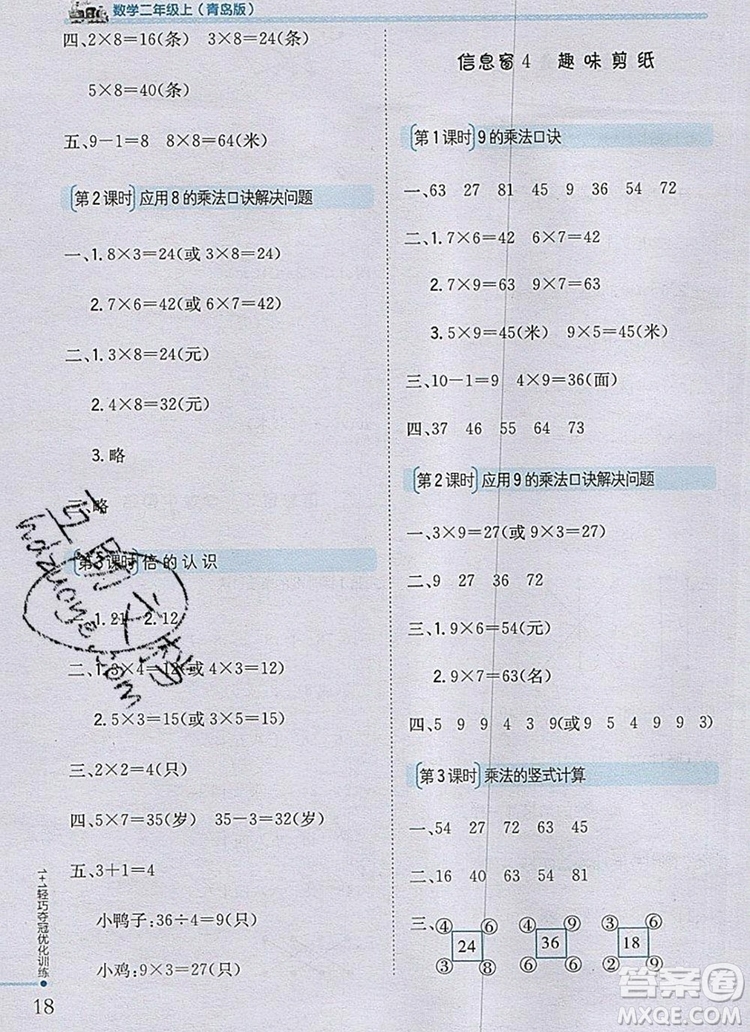 数学二年级上(青岛版)
四、2×8=16(条)　3×8=24(条)
5×8=40(条)
五、9-1=8　8×8=64(米)
第2课时 应用8的乘法口诀解决问题
一、1. 8×3=24(或3×8=24)
2. 7×6=42(或6×7=42)
二、1. 3×8=24(元)
2. 4×8=32(元)
3. 略
三、略
第3课时 倍的认识
一、1. 21　2. 12
二、1. 3×4=12(或4×3=12)
2. 5×3=15(或3×5=15)
三、2×2=4(只)
四、5×7=35(岁)　35-3=32(岁)
五、3+1=4
小鸭子:36÷4=9(只)
小鸡:9×3=27(只)
1+1轻巧夺冠优化训练
18
信息窗4　趣味剪纸
第1课时 9的乘法口诀
一、63　27　81　45　9　36　54　72
二、1. 7×6=42　6×7=42
2. 7×9=63　9×7=63
3. 5×9=45(米)　9×5=45(米)
三、10-1=9　4×9=36(面)
四、37　46　55　64　73
第2课时 应用9的乘法口诀解决问题
一、3×9=27(或9×3=27)
二、9　27　36　72
三、1. 9×6=54(元)
2. 9×7=63(名)
四、5　9　9　4　3　9(或9　5　4　9　9　3)
第3课时 乘法的竖式计算
一、54　27　72　63　45
二、16　40　54　81　32
三、④ ⑥ 24 ③ ⑧　④ ⑨ 36 ④ ⑨　③ ⑥ 18 ③ ⑥
作业精灵
hdzuoye.com
答案圈
MXQE.COM